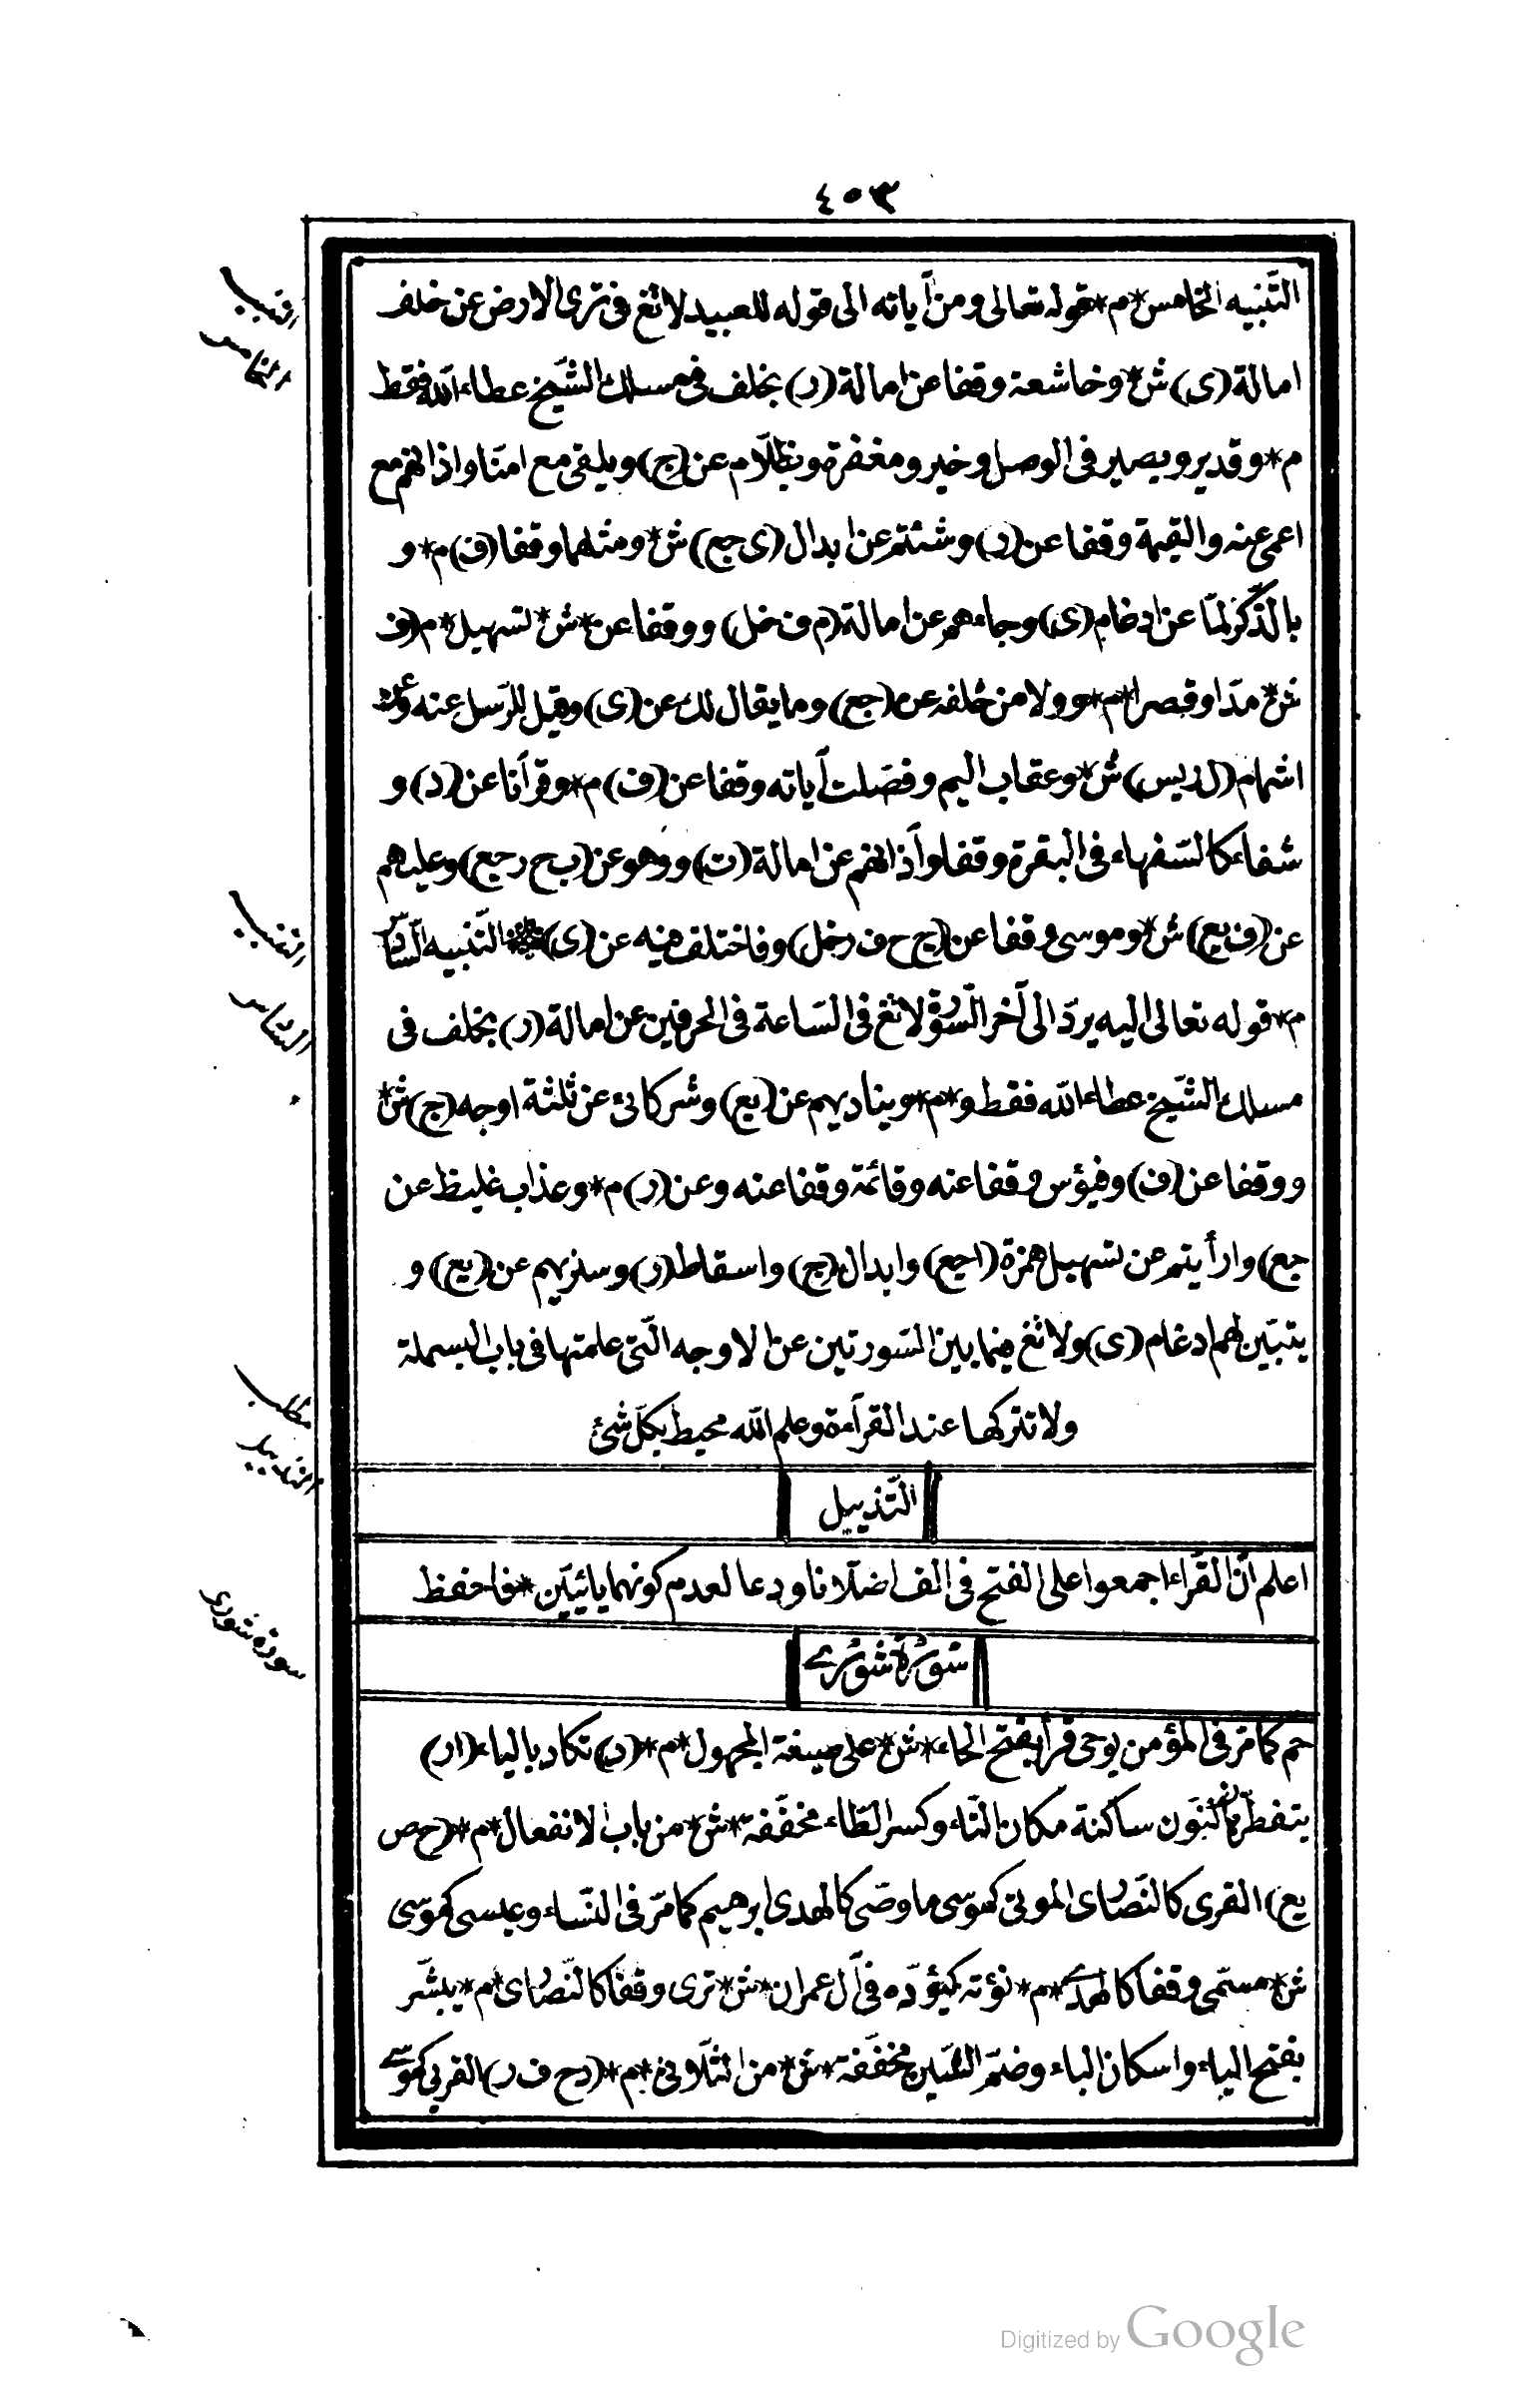 ٤٥٣
التّنبيه الخامس * م * قوله تعالى ومن آياته الى قوله للعبيد لا تغ فى ترى الارض عن خلف
امالة (ى) ش * وخاشعة وقفا عن امالة (ر) بخلف فى مسلك الشّيخ عطاء الله فقط
م * وقدير وبصير فى الوصل وخير ومغفرة وبظلّام عن (ج) ويلقى مع امنا واذانهم مع
اعمى عنه والقيمة وقفا عن (ر) وشئتم عن ابدال (ى جع) ش * ومثلهما وقفا (ف) م * و
بالذّكر لمّا عن ادغام (ى) وجاءهم عن امالة (م ف خل) ووقفا عن * ش * تسهيل * م (ف
ش * مدّا وقصرا * م * وولا من خلفه عن (جع) وما يقال لك عن (ى) وقيل للرّسل عنه وعن
اشمام (ل ر يس) ش * وعقاب اليم وفصّلت آياته وقفا عن (ف) م * وقرآنا عن (د) و
شفاء كالسّفهاء فى البقرة وقفا وآذانهم عن امالة (ت) ووهو عن (ب ح ر جع) وعليهم
عن (ف يع) ش * وموسى وقفا عن (ج ح ف ر خل) وفاختلف فيه عن (ى) التّنبيه السّادس
م * قوله تعالى اليه يردّ الى آخر السّورة لا تغ فى السّاعة فى الحرفين عن امالة (ر) بخلف فى
مسلك الشّيخ عطاء الله فقط و * م * ويناديهم عن (يع) وشركائ عن ثلثة اوجه (ج) ش *
ووقفا عن (ف) وفيؤس وقفا عنه وقائمة وقفا عنه وعن (ر) م * وعذاب غليظ عن
جع) وارأيتم عن تسهيل همزة (ا جع) وابدال (ج) واسقاط (ر) وسنريهم عن (يع) و
يتبيّن لهم ادغام (ى) ولا تغ فيما بين السّورتين عن الاوجه الّتى علمتها فى باب البسملة
ولا تتركها عند القرآءة وعلم الله محيط بكلّ شئ
التّذييل
اعلم انّ القرّاء اجمعوا على الفتح فى الف اضلّانا ودعا لعدم كونهما يائيّين * فاحفظ
سورة شورى
حم كما مرّ فى المؤمن يوحى قرأ بفتح الحاء * ش * على صيغة المجهول * م * (د) تكاد بالياء (ا ر)
يتفطّرن بالنّون ساكنة مكان التّاء وكسر الطّاء مخفّفة * ش * من باب الانفعال * م * (ح ص
يع) القرى كالنّصارى الموتى كموسى ما وصّى كالهدى ابرهيم كما مرّ فى النّساء وعيسى كموسى
ش * مسمّى وقفا كالهدى * م * نؤته كيؤدّه فى آل عمران * ش * ترى وقفا كالنّصارى * م * يبشّر
بفتح الياء واسكان الباء وضمّ الشّين مخفّفة * ش * من الثلاثىّ * م * (د ح ف ر) القربى كموسى
التنبيه
الخامس
التنبيه
السادس
مطلب
التذييل
سورة شورى
Digitized by Google